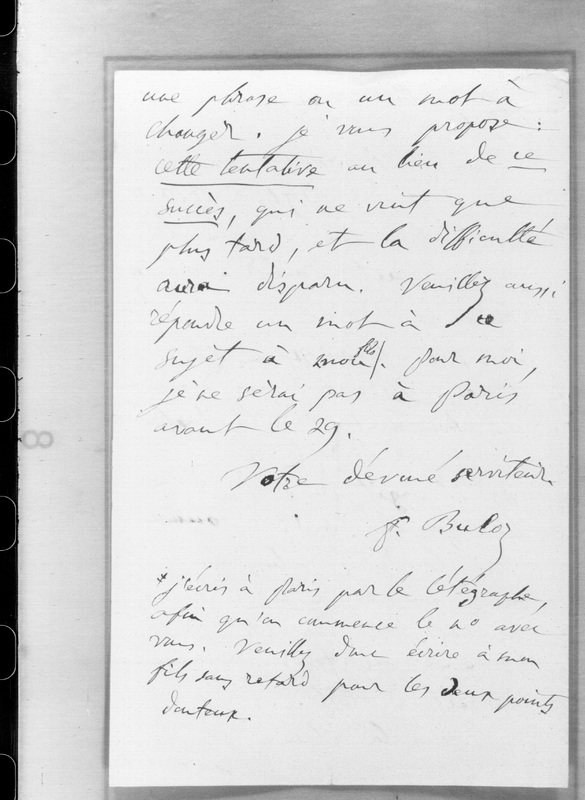 une phrase ou un mot à
changer. je vous propose :
cette tentative au lieu de ce
succès, qui ne vient que
plus tard, et la difficulté
aura disparu. Veuillez aussi
répondre un mot à ce
sujet à mon fils. Pour moi,
je ne serai pas à Paris
avant le 29.
Votre dévoué serviteur
F. Buloz
* j'écris à Paris par le télégraphe,
afin qu'on commence le no avec
vous. Veuillez donc écrire à mon
fils sans retard pour les deux points
douteux.
8